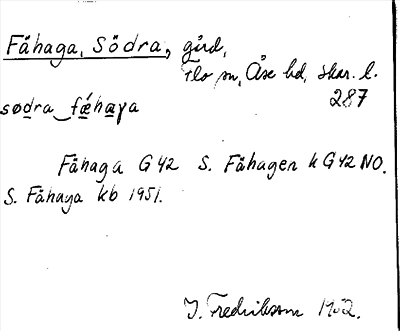 Fåhaga, Södra, gård,
Flo sn, Åse hd, Skar. l.
287
sødra fǽhaɣa
Fåhaga G 42 S. Fåhagen k G 42 NO.
S. Fåhaga kb 1951.
J. Fredriksson